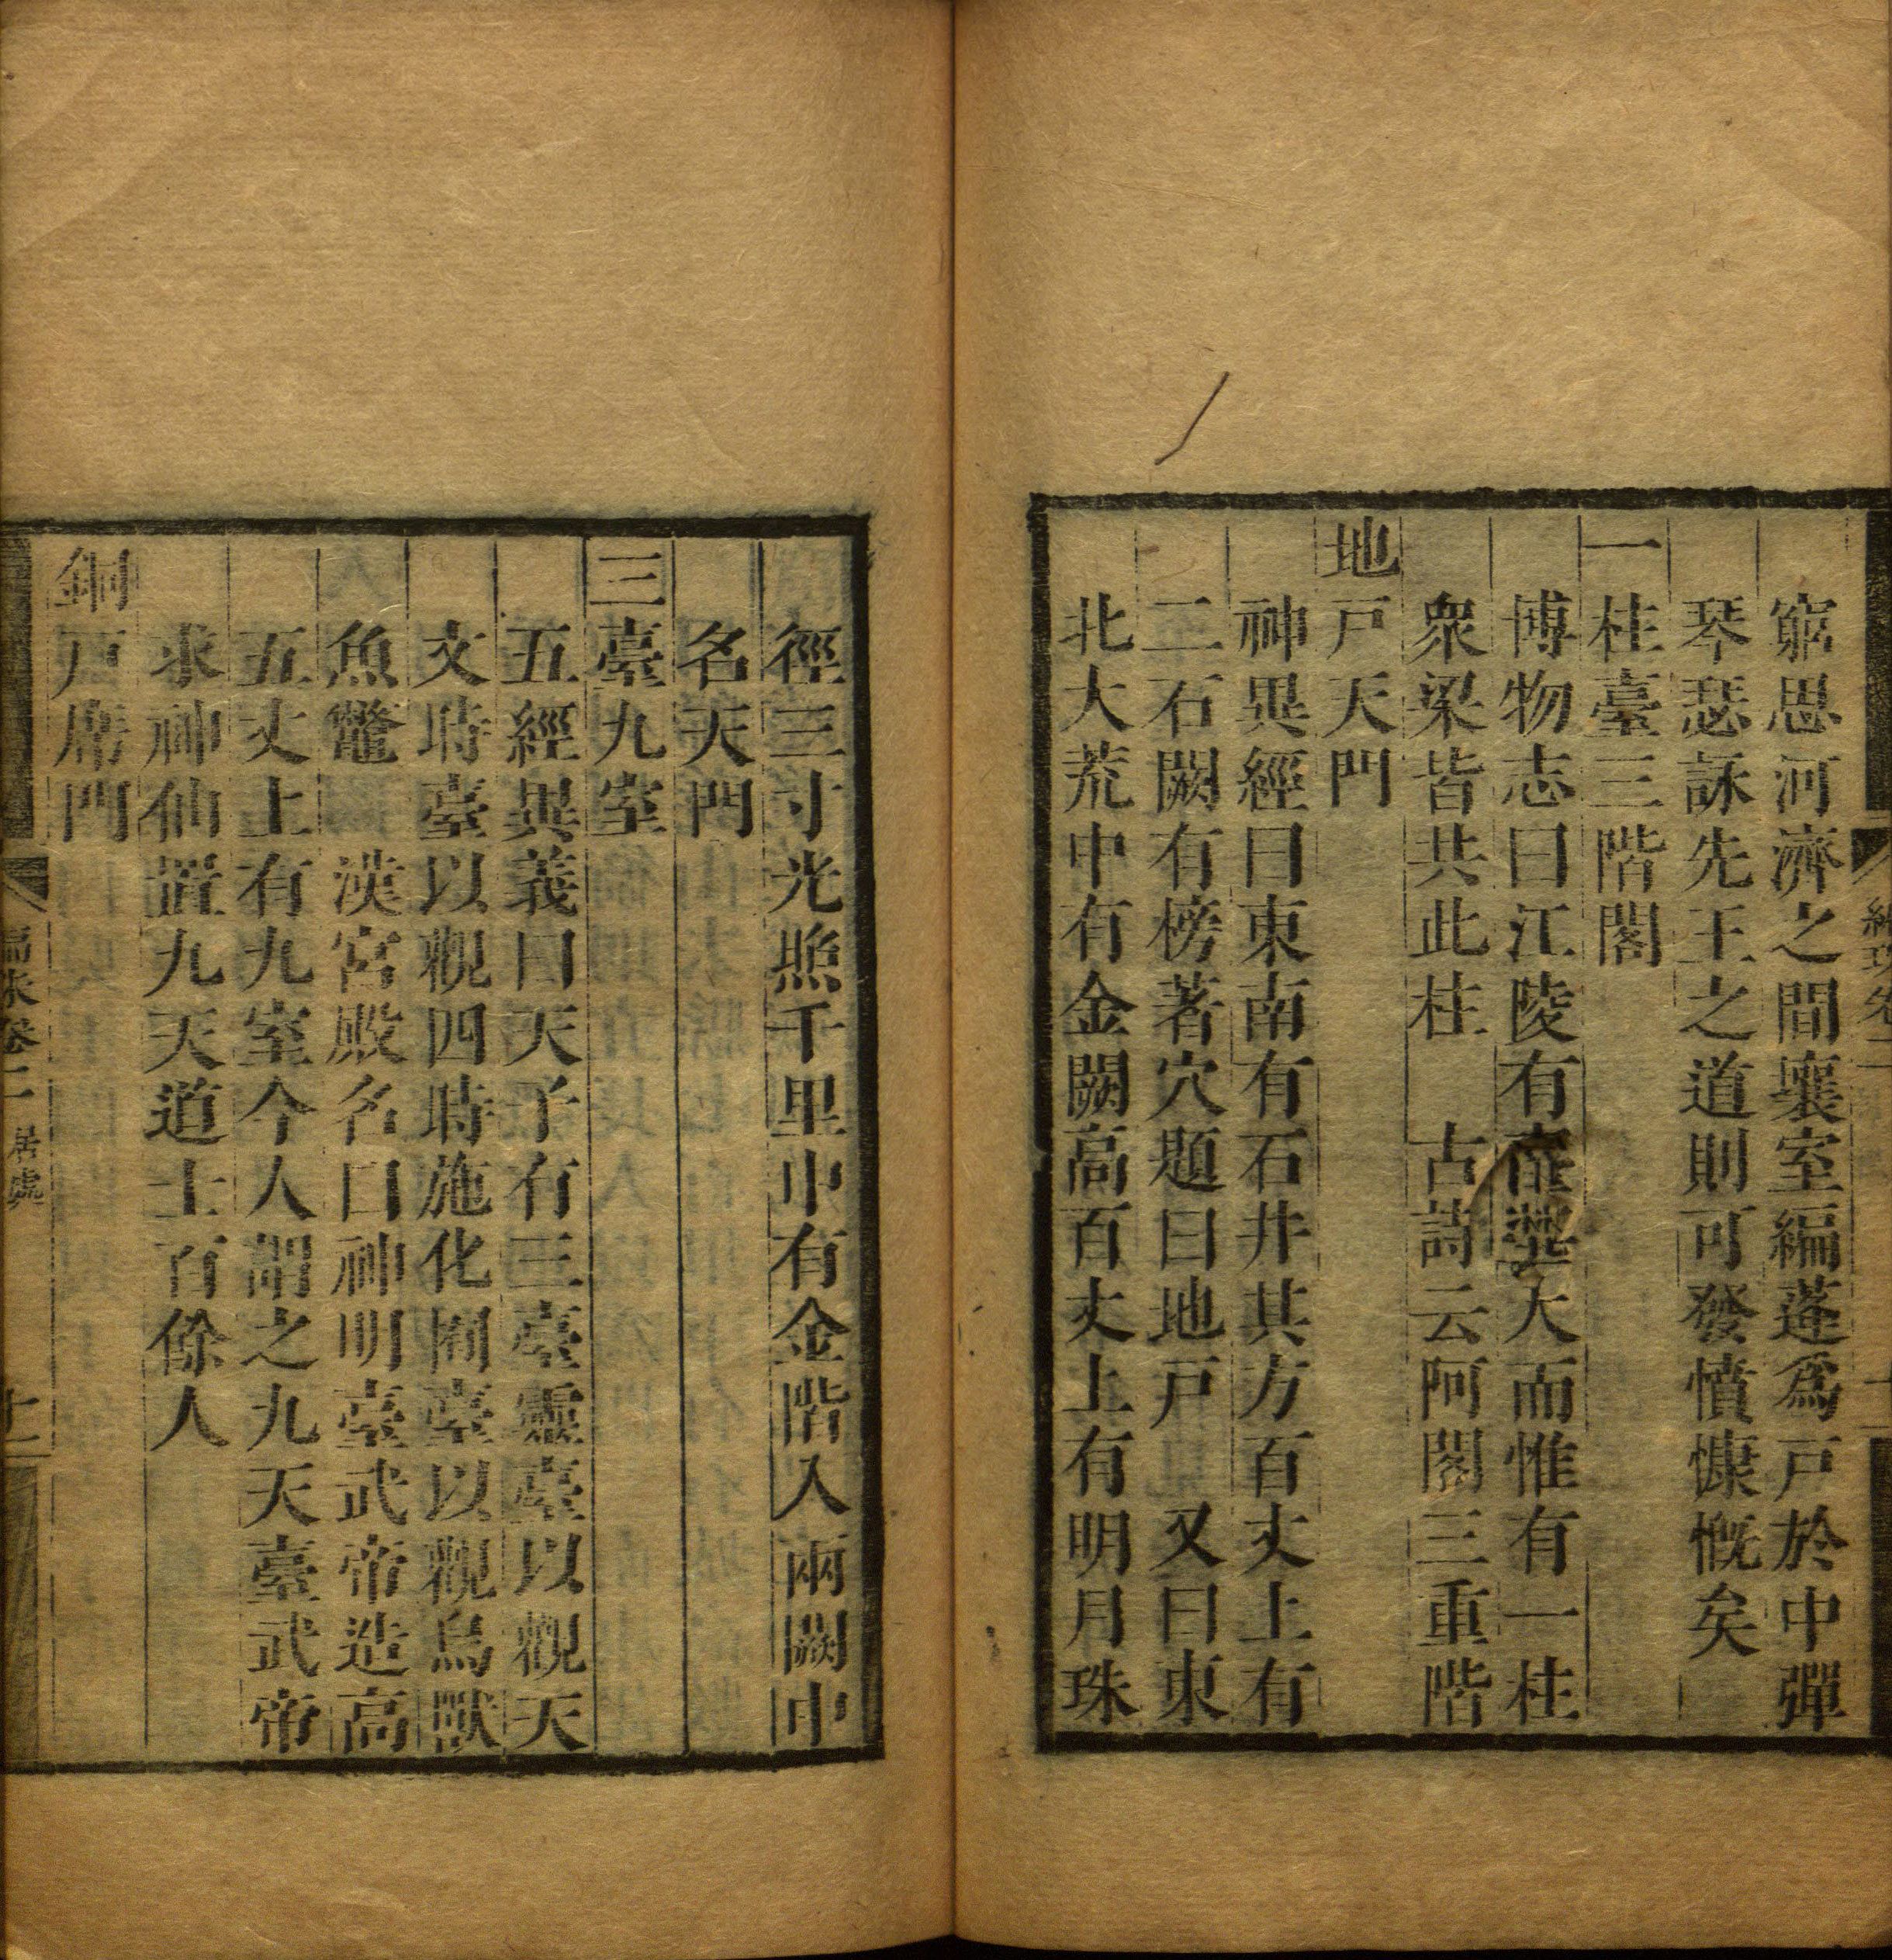 窮思河濟之間壤室編蓬爲戸於中彈
琴瑟詠先王之道則可發憤慷慨矣
一桂臺三階閣
博物志曰江陵有臺甚大而惟有一柱
衆梁皆共此柱　古詩云阿閣三重階
地戸天門
神異經曰東南有石井其方百丈上有
二石闕有榜著穴題曰地戸　又曰東
北大荒中有金闕高百丈上有明月珠
徑三寸光照千里中有金階入兩闕中
名天門
三臺九室
五經異義曰天子有三臺靈臺以觀天
文時臺以觀四時施化囿臺以觀鳥獸
魚鼈　漢宮殿名曰神明臺武帝造高
五丈上有九室今人謂之九天臺武帝
求神仙置九天道士百餘人
銅戸席門
卷二 居處
十二